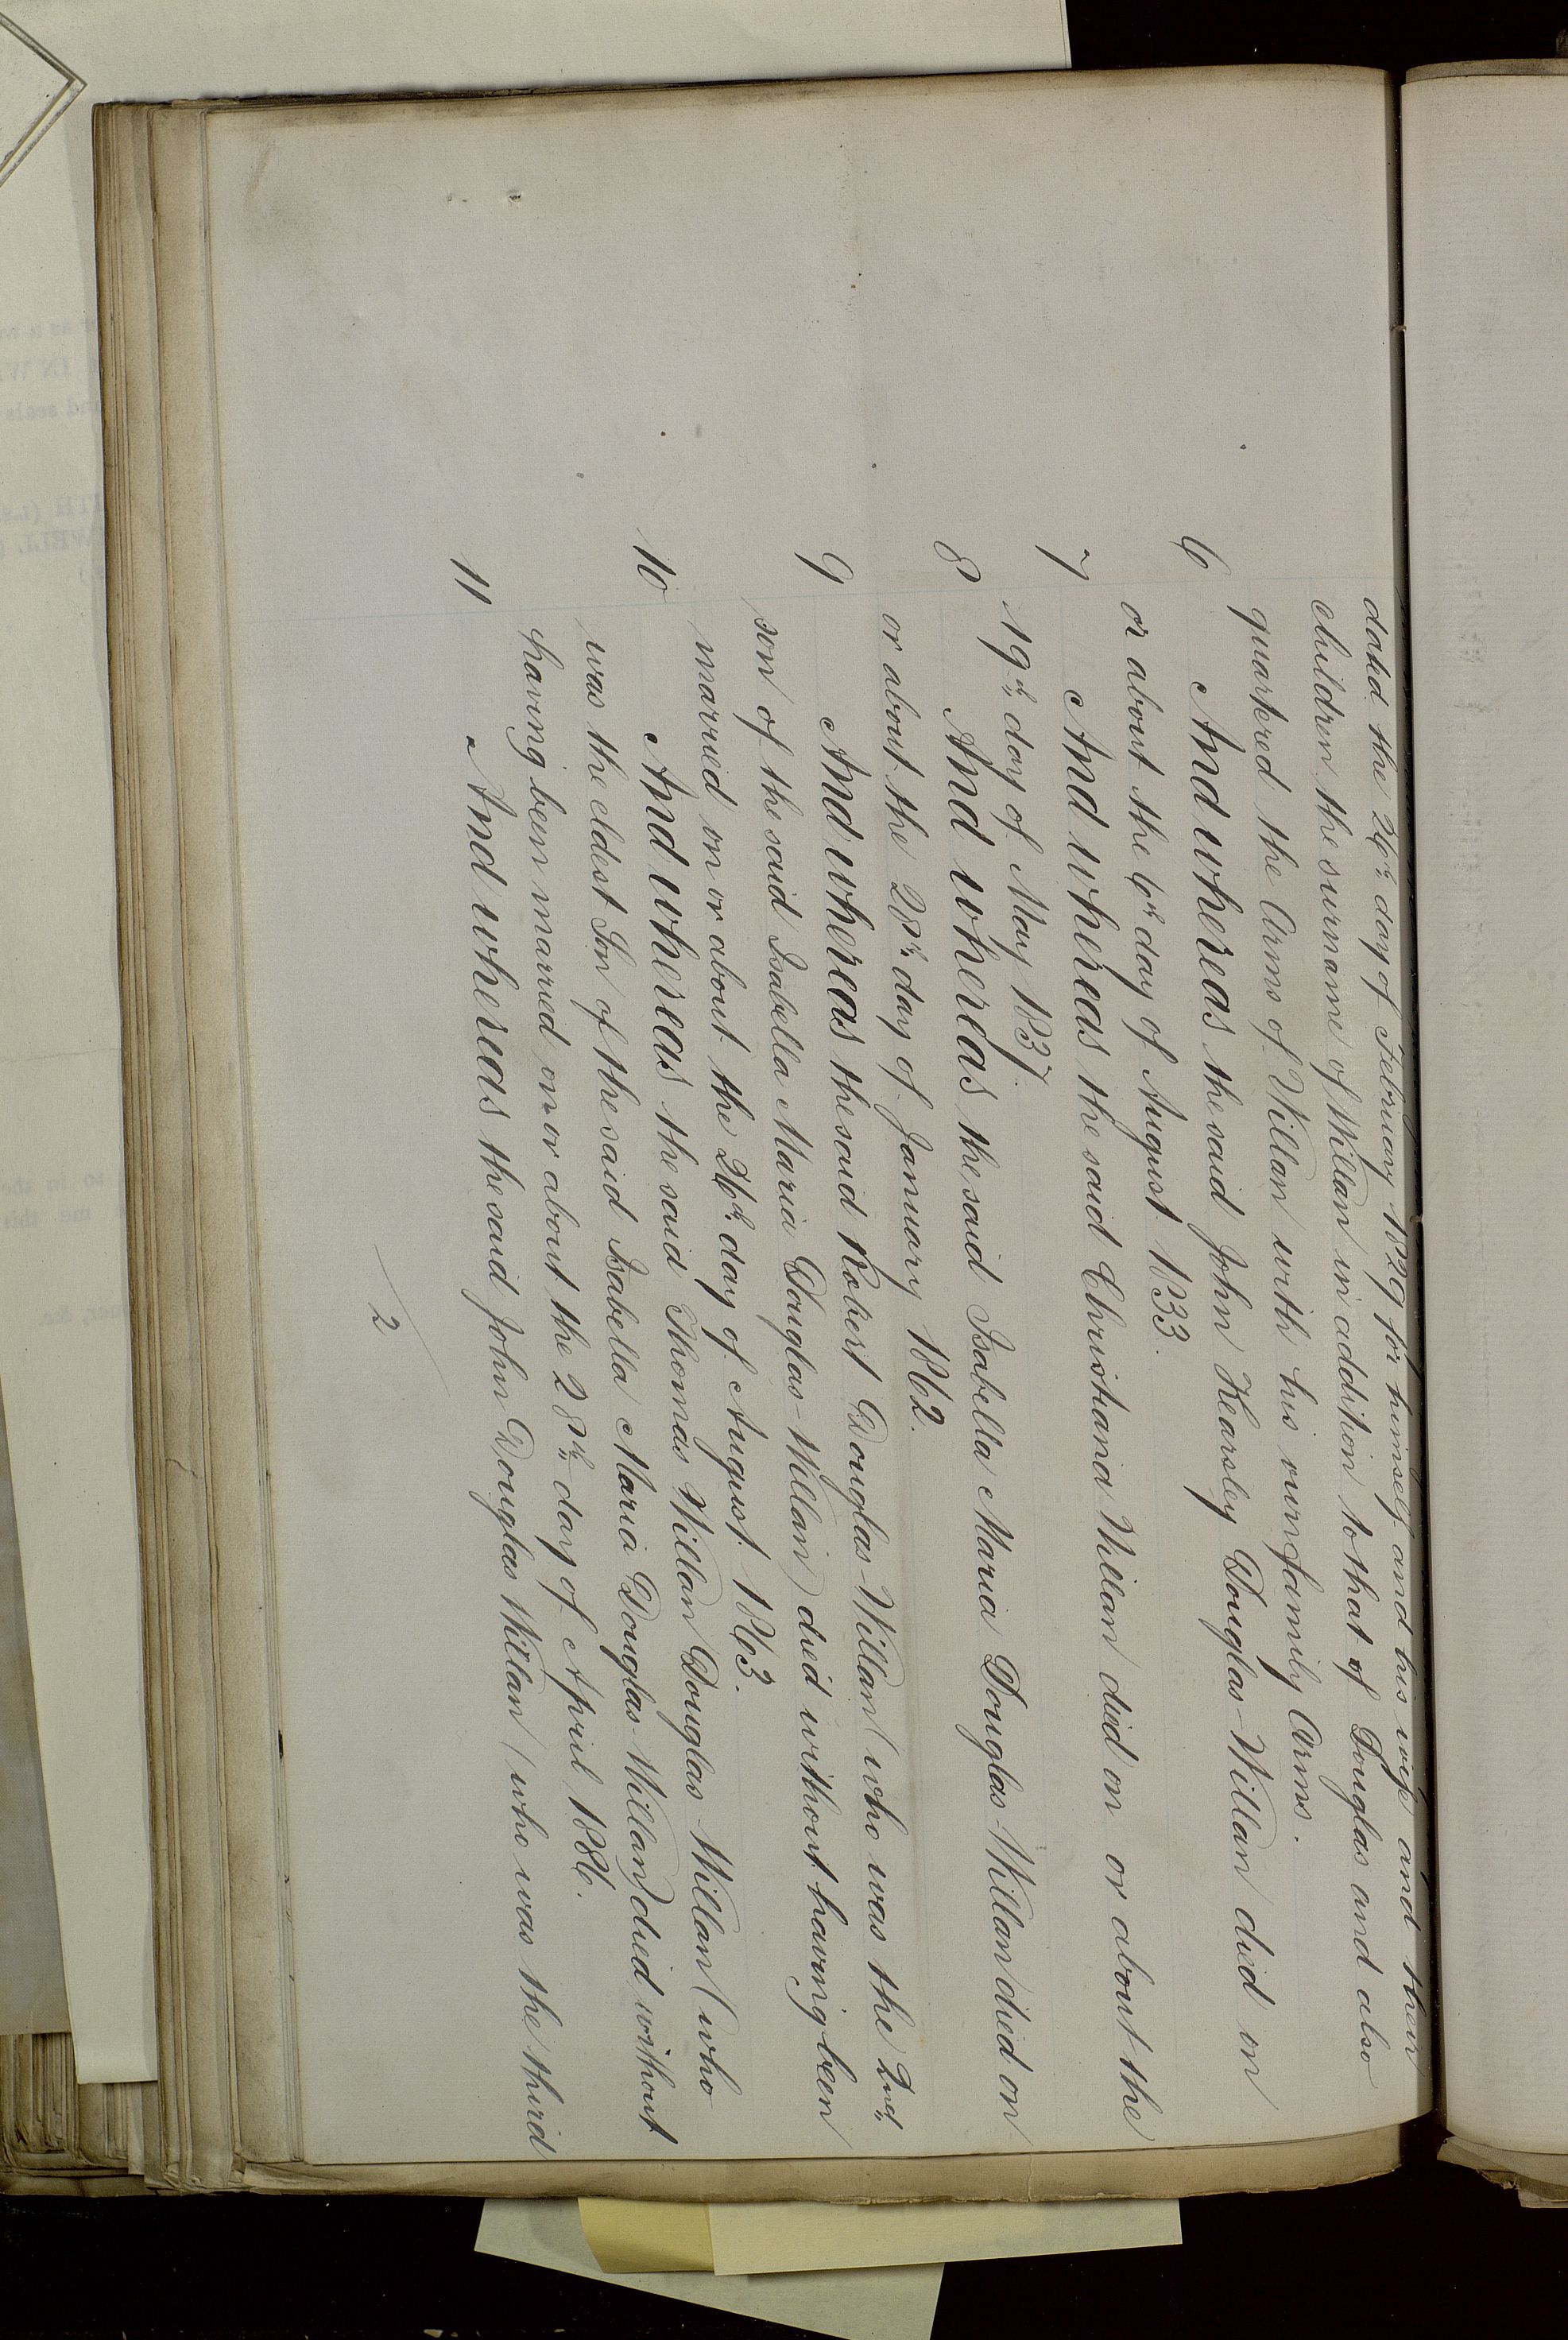 dated the 24th day of February 1829 for himself and his wife and their
children the surname of Willan in addition to that of Douglas and also
quartered the Arms of Willan with his own family Arms.
6 And whereas the said John Kearsley Douglas-Willan died on
or about the 6th day of August 1833.
7 And whereas the said Christiana Willan died on or about the
19th day of May 1837.
8 And whereas the said Isabella Maria Douglas-Willan died on
or about the 28th day of January 1862.
9 And whereas the said Robert Douglas-Willan (who was the 2nd
son of the said Isabella Maria Douglas-Willan) died without having been
married on or about the 26th day of August 1863.
10 And whereas the said Thomas Willan Douglas-Willan (who
was the eldest Son of the said Isabella Maria Douglas-Willan) died without
having been married on or about the 28th day of April 1886.
11 And whereas the said John Douglas Willan (who was the third
2